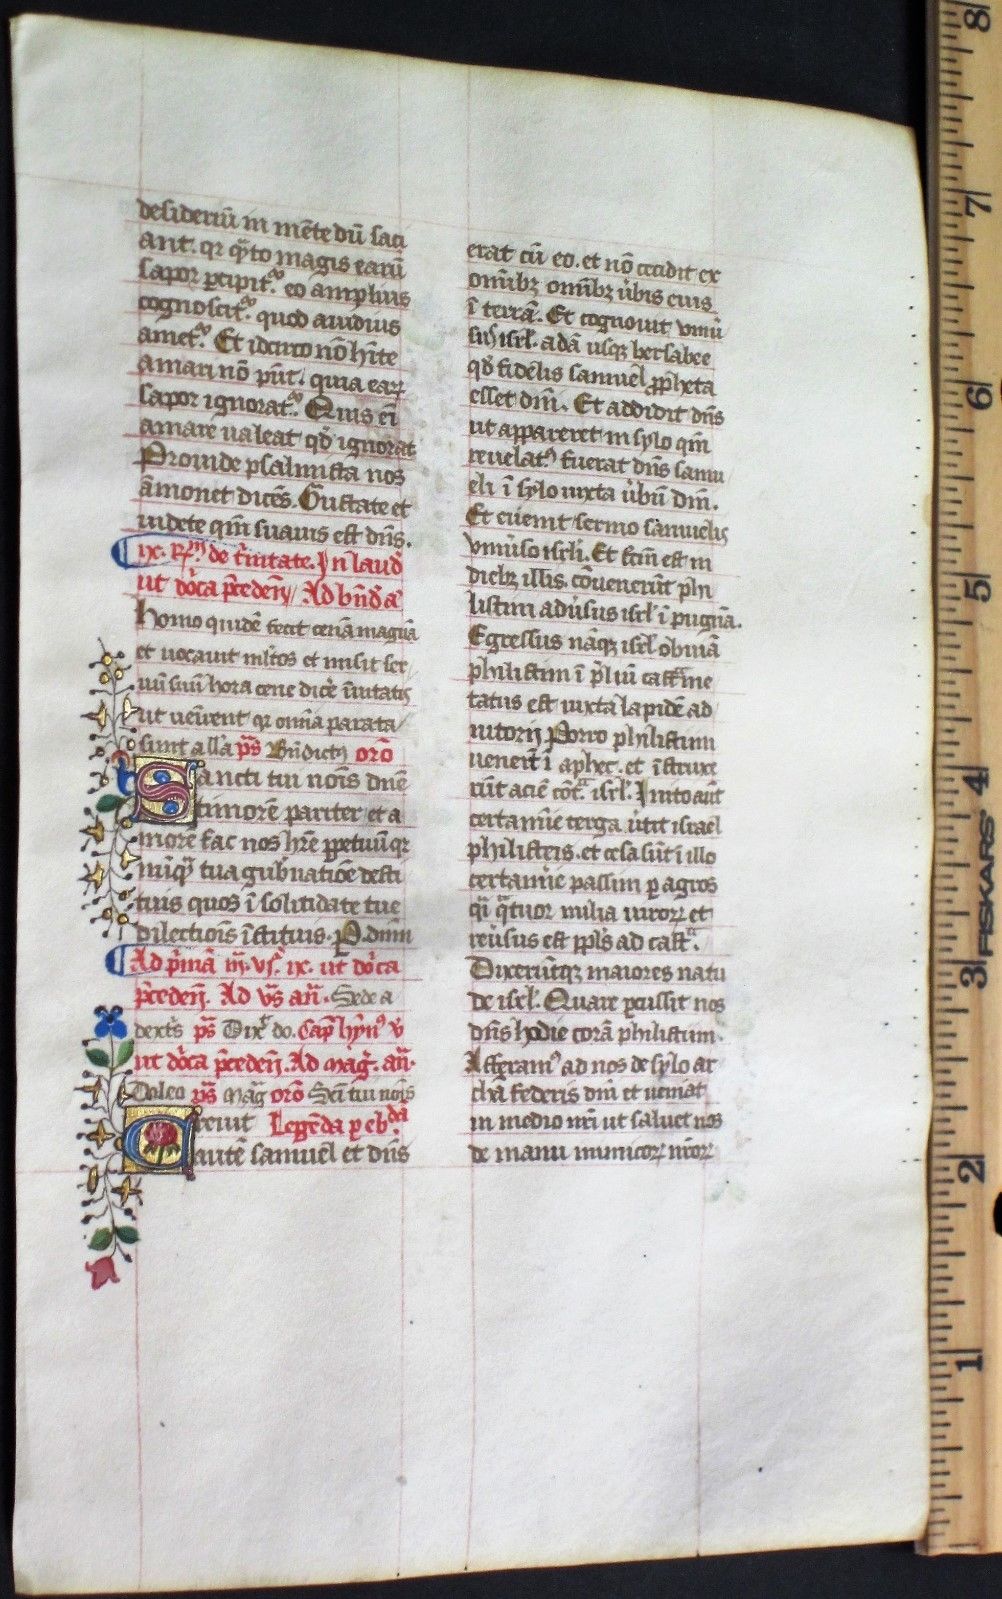 desideriū in mēte dū saci
ant. qr q̄to magis earū
sapor ꝑcipit᷑. eo āmplius
cognoscit᷑. quod auidius
amet᷑. Et idcirco nō hn̄te
amari nō pn̄t. quia eaꝝ
sapor ignorat᷑. Quis ei
amare ualeat qd̄ ignorat
Proinde psalmista nos
āmonet dicēs. Gustate et
uidete qm̄ suauis est dn̄s.
ix. de t̄initate. In laud̄
ut dn̄ca p̄ceden̄ Ad bn̄d̄ an̄
Homo quidē fecit cenā magnā
et uocauit ml̄tos et misit ser
uū suū hora cene dicē īuitatis
ut ueīrent qr omīa parata
sunt all̄a ps̄ Bn̄dictus orō
Sancti tui noīs dn̄e
timorē pariter et a
morē fac nos hr̄e ꝑpetuū qr
nūq̄ tua gub̄natiōe desti
tuis quos ī soliditate tue
dilectiōis īstituis. P. dnm̄
Ad p̄mā ix. ut dn̄ca
p̄ceden̄. Ad vs̄ an̄. Sede a
dextr̄s ps̄ Dix̄ do. Cap̄ hȳn9 v̄
ut dn̄ca p̄ceden̄. Ad Māḡ. an̄.
ps̄ Māḡ orō Sc̄i tui noīs
Creuit Legēda ꝑ ebda
autē samuel et dn̄s
erat cū eo. et nō cecidit ex
omībꝫ omībꝫ ūbis eius
ī terrā. Et cognouit vniū
sus isrl̄. a dā usqꝫ bersabee
qd̄ fidelis samuel ꝓpheta
esset dnī. Et addidit dn̄s
ut appareret in sylo qm̄
reuelat᷒ fuerat dn̄s samu
eli ī sylo iuxta ūbū dnī.
Et euenit sermo samuelis
vniūso isrl̄i. Et fcm̄ est in
diebꝫ illis. cōuenerūt phi
listim adūsus isrl̄ ī pugnā.
Egressus nāqꝫ isrl̄ obuiā
philistim ī p̄liū castme
tatus est iuxta lapidē ad
iutorij Porro philistiim
ueneit ī aphec. et īstruxe
rūt aciē cōt̄ isrl̄. Inito aūt
certamīe terga ūtit israel
philisteis. et cesa sūt ī illo
certamīe passim ꝑ agros
q̄i q̄tuor milia uiroꝝ et
reūsus est ppl̄s ad cast̄.
Dixerūtqꝫ maiores natu
de isrl̄. Quare ꝑcussit nos
dn̄s hodie corā philistiim.
Afferam᷒ ad nos de sylo ar
chā federis dnī et ueniat
in medio nr̄i ut saluet nos
de manu inimicoꝝ nr̄oꝝ
8
7
6
5
4
FISKARS
3
2
1